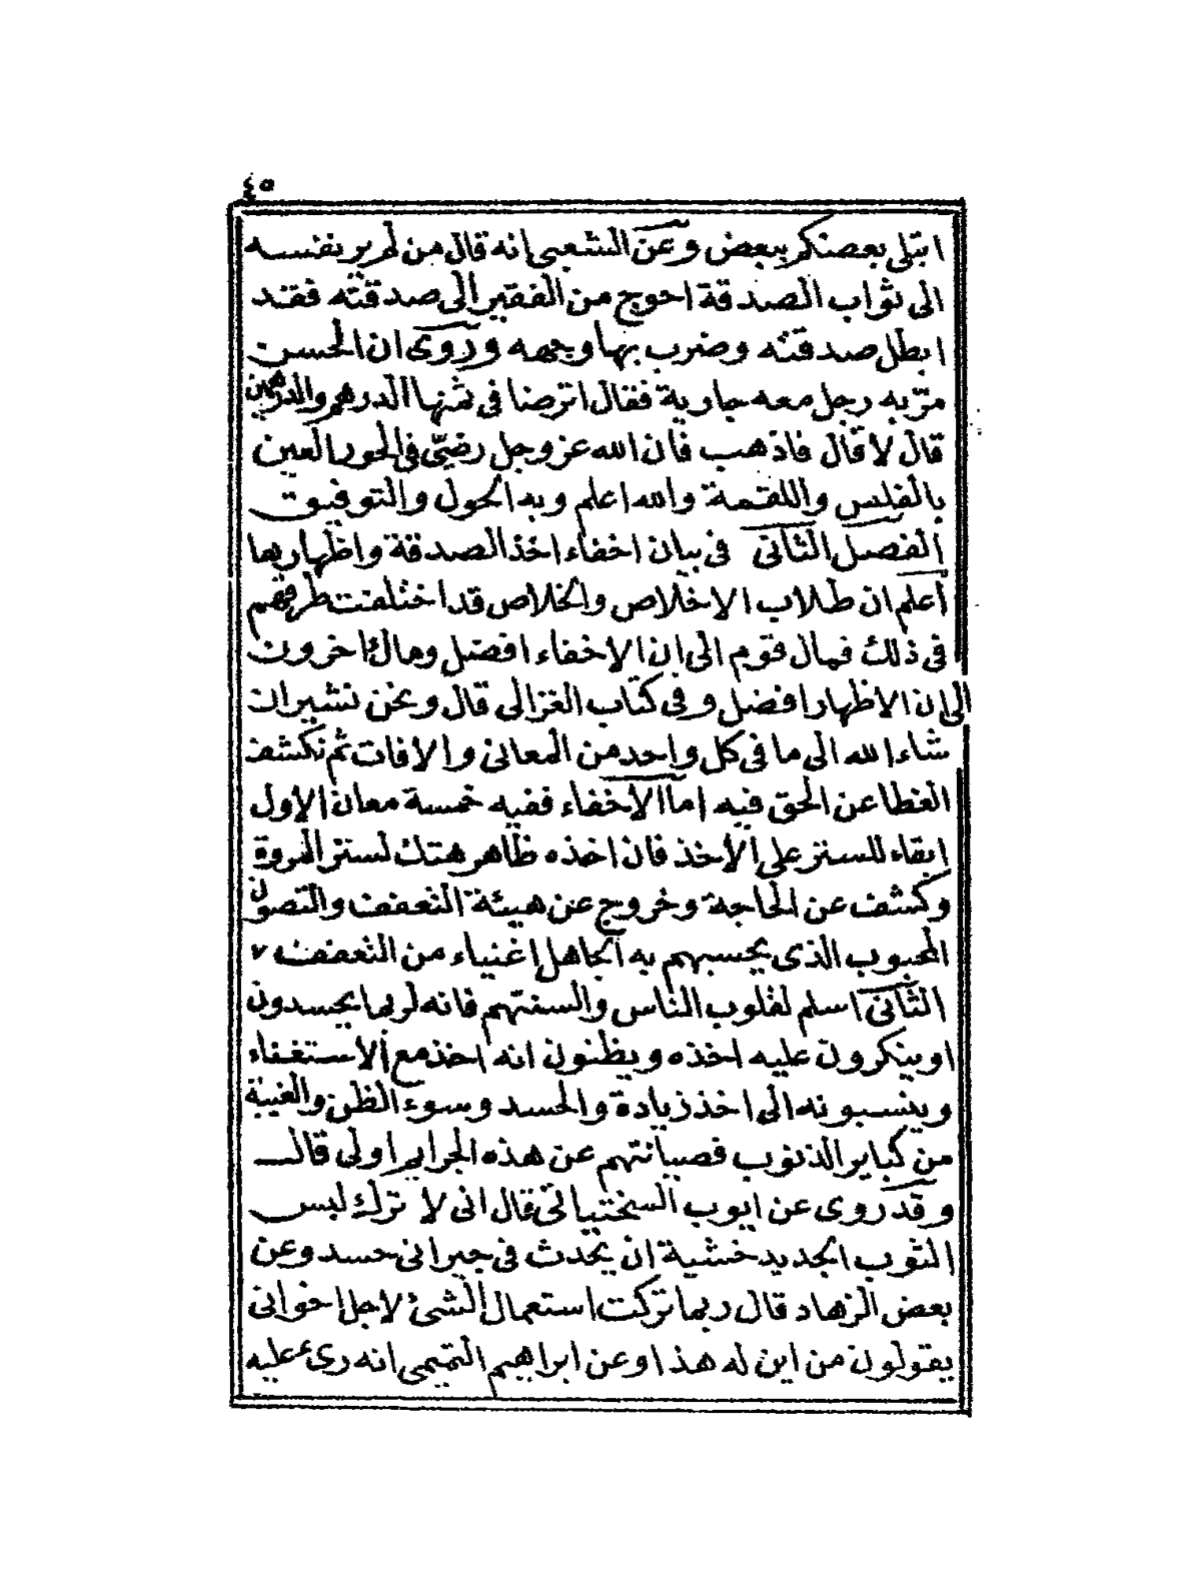 ٤٥
ابتلى بعضكم ببعض وعن الشعبى انه قال من لم ير نفسه
الى ثواب الصدقة احوج من الفقير الى صدقته فقد
ابطل صدقته وضرب بها وجهه وروى ان الحسن
مرّ به رجل معه جارية فقال اترضا فى ثمنها الدرهم والدرهمين
قال لا قال فاذهب فان الله عز وجل رضىّ فى الحور العين
بالفلس واللقمة والله اعلم وبه الحول والتوفيق
الفصل الثانى فى بيان اخفاء اخذ الصدقة واظهارها
أعلم ان طلاب الاخلاص والخلاص قد اختلفت طرقهم
فى ذلك فمال قوم الى ان الاخفاء افضل ومال اخرون
الى ان الاظهار افضل وفى كتاب الغزالى قال ونحن نشير ان
شاء الله الى ما فى كل واحد من المعانى والافات ثم نكشف
الغطا عن الحق فيه اما الاخفاء ففيه خمسة معان الاول
ابقاء للستر على الأخذ فان اخذه ظاهر هتك لستر المروة
وكشف عن الحاجة وخروج عن هيئة التعفف والتصون
المحبوب الذى يحسبهم به الجاهل إغنياء من التعفف ٧
الثانى اسلم لقلوب الناس والسنتهم فانه لربما يحسدون
او ينكرون عليه اخذه ويظنون انه اخذ مع ألاستغناء
وينسبونه الى اخذ زيادة والحسد وسوء الظن والغيبة
من كباير الذنوب فصيانتهم عن هذه الجرايم اولى قال
وقد روى عن ايوب السختيانى قال انى لا ترك لبس
الثوب الجديد خشية ان يحدث فى جيرانى حسد وعن
بعض الزهاد قال ربما تركت استعمال الشئ لاجل إخوانى
يقولون من اين له هذا وعن ابراهيم التميمى انه رىء عليه